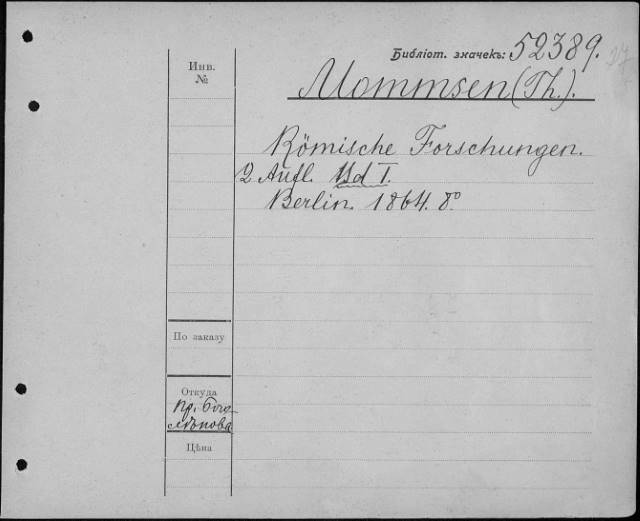 Библіот. значекъ: 52389.
Инв.
№
Mommsen (Th.).
Römische Forschungen.
2 Aufl. Bd I.
Berlin. 1864. 8º
По заказу
Откуда
Пр. Бого-
лѣпова
Цѣна